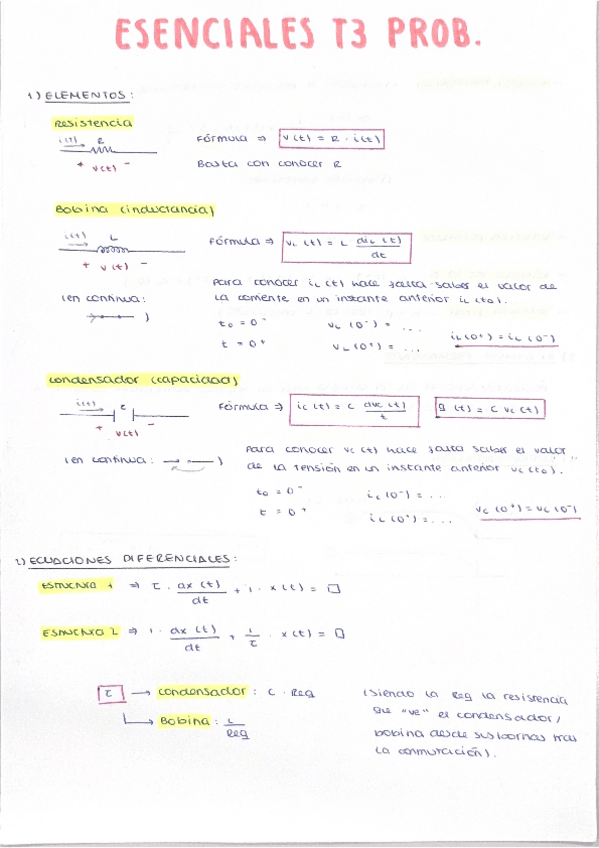 ESENCIALES T3 PROB.
1) ELEMENTOS:
Resistencia
i(t) R
+ v(t) -
Fórmula ⇒ v(t) = R · i(t)
Basta con conocer R
Bobina (inductancia)
i(t) L
+ v(t) -
Fórmula ⇒ vL (t) = L diL (t) / dt
(en continua: )
Para conocer iL (t) hace falta saber el valor de
la corriente en un instante anterior iL (t0).
t0 = 0⁻ vL (0⁻) = ...
t = 0⁺ vL (0⁺) = ... iL (0⁺) = iL (0⁻)
Condensador (capacidad)
i(t) C
+ v(t) -
Fórmula ⇒ ic (t) = C dvc (t) / t q (t) = C vc (t)
(en continua: )
Para conocer vc (t) hace falta saber el valor
de la tensión en un instante anterior vc (t0).
t0 = 0⁻ ic (0⁻) = ...
t = 0⁺ ic (0⁺) = ... vc (0⁺) = vc (0⁻)
2) ECUACIONES DIFERENCIALES:
Estructura 1 ⇒ τ · dx (t) / dt + 1 · x (t) = □
Estructura 2 ⇒ 1 · dx (t) / dt + 1 / τ · x (t) = □
τ → Condensador: C · Req
→ Bobina: L / Req
(Siendo la Req la resistencia
que "ve" el condensador/
bobina desde sus bornas tras
la conmutación).